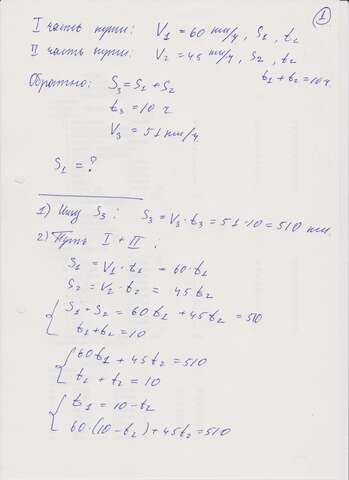 1
I часть пути: V₁ = 60 км/ч, S₁, t₁
II часть пути: V₂ = 45 км/ч, S₂, t₂
t₁ + t₂ = 10 ч.
Обратно: S₃ = S₁ + S₂
t₃ = 10 ч
V₃ = 51 км/ч.
S₁ = ?
1) Ищу S₃: S₃ = V₃·t₃ = 51·10 = 510 км.
2) Путь I + II:
S₁ = V₁·t₁ = 60·t₁
S₂ = V₂·t₂ = 45t₂
{ S₁ + S₂ = 60t₁ + 45t₂ = 510
t₁ + t₂ = 10
{ 60t₁ + 45t₂ = 510
t₁ + t₂ = 10
{ t₁ = 10 - t₂
60·(10 - t₂) + 45t₂ = 510